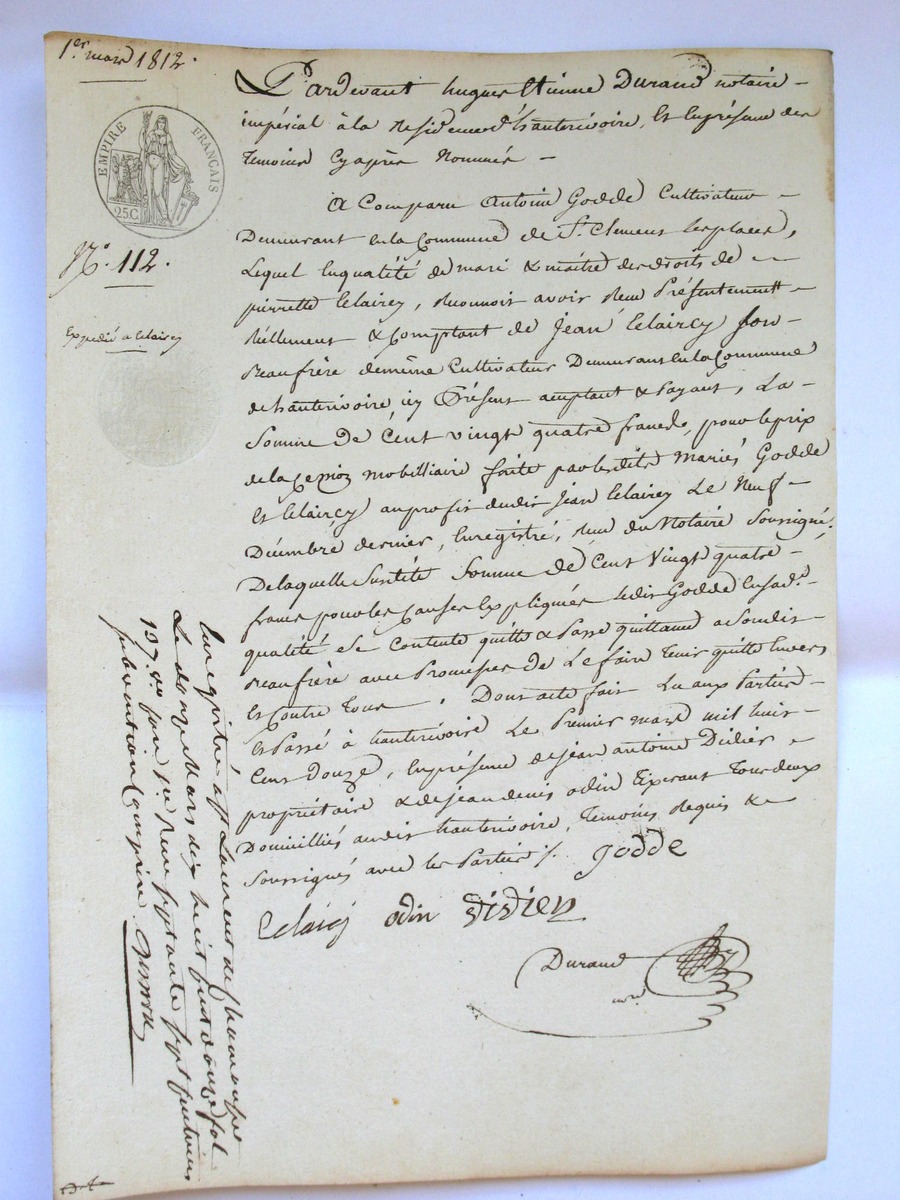 1er mars 1812.
EMPIRE FRANÇAIS
25 C.
N.° 112.
Expédié a Eclaircy
Pardevant hugues Etienne Durand notaire
impérial à la Résidence d'hauterivoire, Et En présence des
temoins Cy après Nommés
A Comparu Antoine Godde Cultivateur
Demeurant En la Commune de St. Clement les places,
Lequel En qualité de mari & maître des droits de
pierrette Eclaircy, Reconnoit avoir Reçu Présentement
Réellement & Comptant de Jean Eclaircy Son
Beaufrère de même Cultivateur Demeurant En la Commune
de hauterivoire, icy Présent acceptant & Payant, La
Somme De Cent vingt quatre francs, pour le prix
de la Cession mobilliaire faite par lesdits Mariés Godde
Et Eclaircy au profit dudit Jean Eclaircy Le Neuf
Décembre dernier, Enregistré, Reçu du Notaire Soussigné,
De laquelle Susdite Somme de Cent Vingt quatre
francs pour les Causes Expliquées ledit Godde En sad.e
qualité Se Contente quitte & Passe quittance a Sondit
Beaufrère avec Promesse de Le faire Tenir quitte Envers
Et Contre Tous. Dont acte fait Lu aux Parties
Et Passé à hauterivoire Le Premier mars mil huit
Cent Douze, En présence de Jean antoine Didier
propriétaire & de Jean denis odin Tixerant Tous deux
Domicilliés audit hauterivoire, Temoins Requis &
Soussignés avec les Parties /.
Godde
Eclaircy odin didier
Durand
not.re
Enregistré à St Laurent de Chamousset
Le douze Mars dix huit Cent douze fol
197 r.o Reçu un franc septante sept Centimes
subvention Comprise.